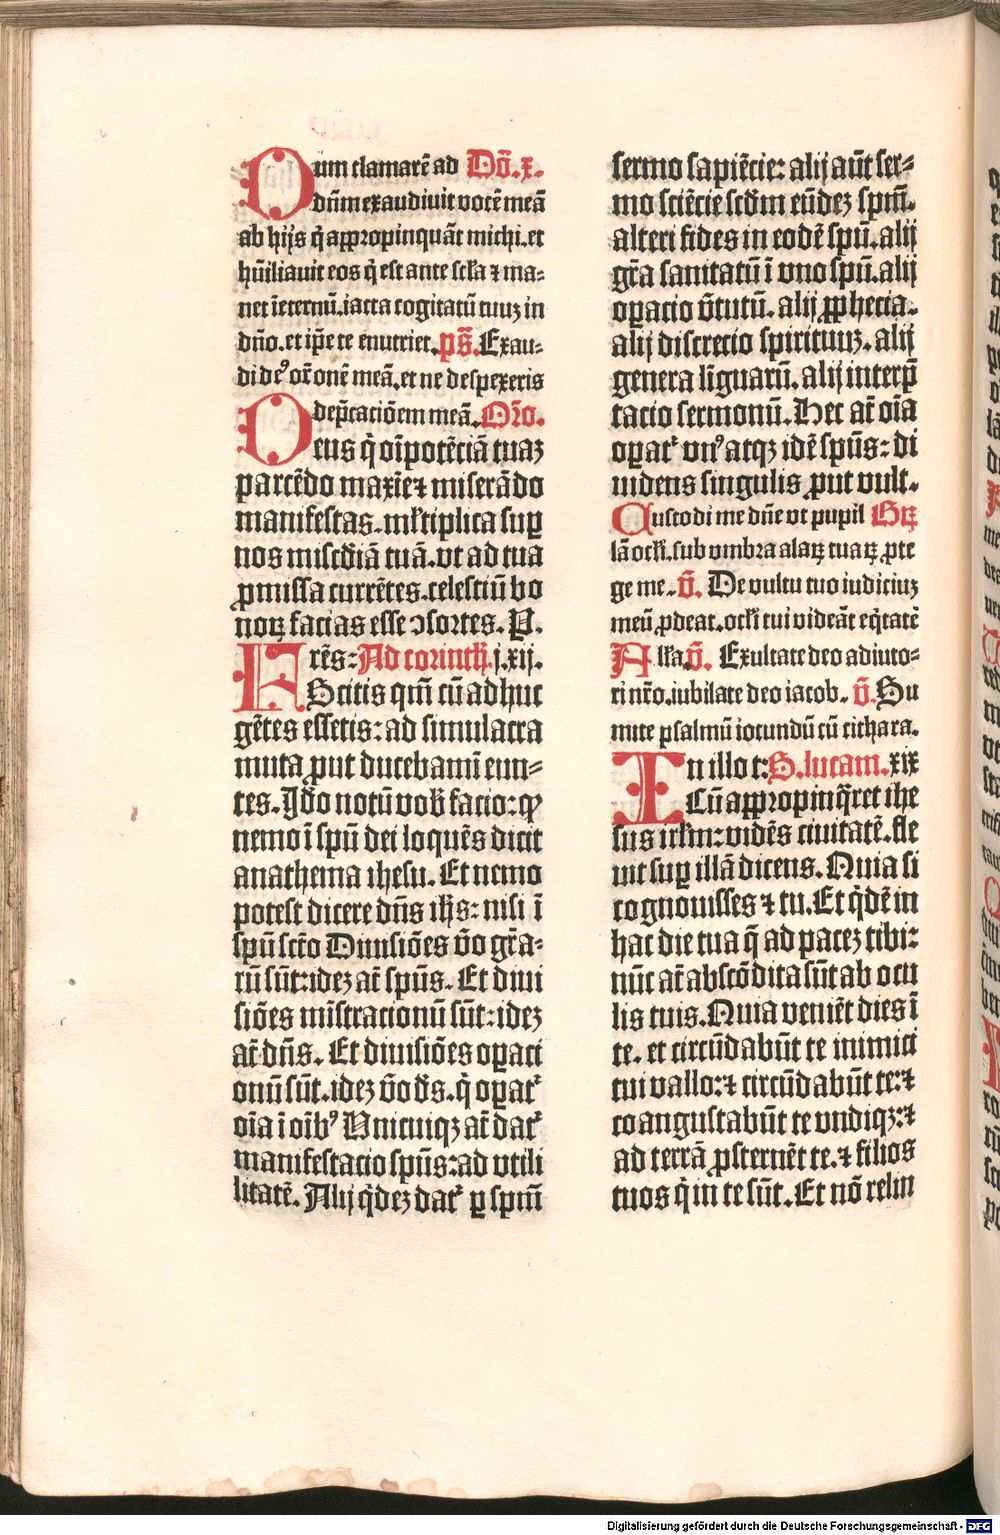 Dum clamarē ad Dō.x.
dn̄m exaudiuit vocē meā
ab hijs q̄ appropinquāt michi.et
hūiliauit eos q̄ est ante scl̄a ⁊ ma-
net ieternū.iacta cogitatū tuuz in
dn̄o.et ip̄e te enutriet.ps̄.Exau-
di deꝰ or̄onē meā.et ne despexeris
dep̄caciōem meā.Or̄o.
Deus q̄ oīpotēciā tuaz
parcēdo maxīe ⁊ miserādo
manifestas.ml̄tiplica suꝑ
nos miscd̄iā tuā.vt ad tua
ꝓmissa currētes.celestiū bo
noꝝ facias esse ↄsortes. P̄.
Frēs:Ad corinth̄.j.xij.
Scitis qm̄ cū adhuc
gētes essetis:ad simulacra
muta ꝓut ducebamī eun-
tes. Jd̄o notū vob̄ facio:ꝙ
nemo ī spū dei loquēs dicit
anathema ihesu. Et nemo
potest dicere dn̄s ih̄s: nisi ī
spū sct̄o Diuisiōes v̄o gr̄a-
rū sūt:idez at̄ spūs. Et diui
siōes mīstracionū sūt:idez
at̄ dn̄s. Et diuisiōes oꝑaci
onū sūt.idez v̄o ds̄.q̄ oꝑat᷑
oīa ī oīb᷒ Vnicuiqꝫ at̄ dat᷑
manifestacio spūs:ad vtili
litatē. Alij q̄dez dat᷑ ꝑ spm̄
sermo sapiēcie: alij aūt ser-
mo sciēcie scd̄m eūdez spm̄.
alteri fides in eodē spū.alij
gr̄a sanitatū ī vno spū.alij
oꝑacio v̄tutū. alij ꝓphecia.
alij discrecio spirituuz. alij
genera līguarū. alij interp̄
tacio sermonū. Hec at̄ oīa
oꝑat᷑ vnꝰ atqꝫ idē spūs: di
uidens singulis ꝓut vult.
Custodi me dn̄e vt pupil Gꝝ
lā ocl̄i.sub vmbra alaꝝ tuaꝝ ꝓte
ge me. v̄. De vultu tuo iudiciuz
meū ꝓdeat.ocl̄i tui videāt eq̄tatē
All̄a.v̄. Exultate deo adiuto-
ri nr̄o.iubilate deo iacob. v̄.Su
mite psalmū iocundū cū cithara.
In illo t:S.lucam.xix
Cū appropinq̄ret ihe
sus irl̄m: vidēs ciuitatē.fle
uit suꝑ illā dicens. Nuia si
cognouisses ⁊ tu. Et q̄dē in
hac die tua q̄ ad pacez tibi:
nūc at̄ abscōdita sūt ab ocu
lis tuis. Nuia veniēt dies ī
te. et circūdabūt te inimici
tui vallo:⁊ circūdabūt te:⁊
coangustabūt te vndiqꝫ:⁊
ad terrā ꝓsternēt te.⁊ filios
tuos q̄ in te sūt. Et nō relin
Digitalisierung gefördert durch die Deutsche Forschungsgemeinschaft - DFG